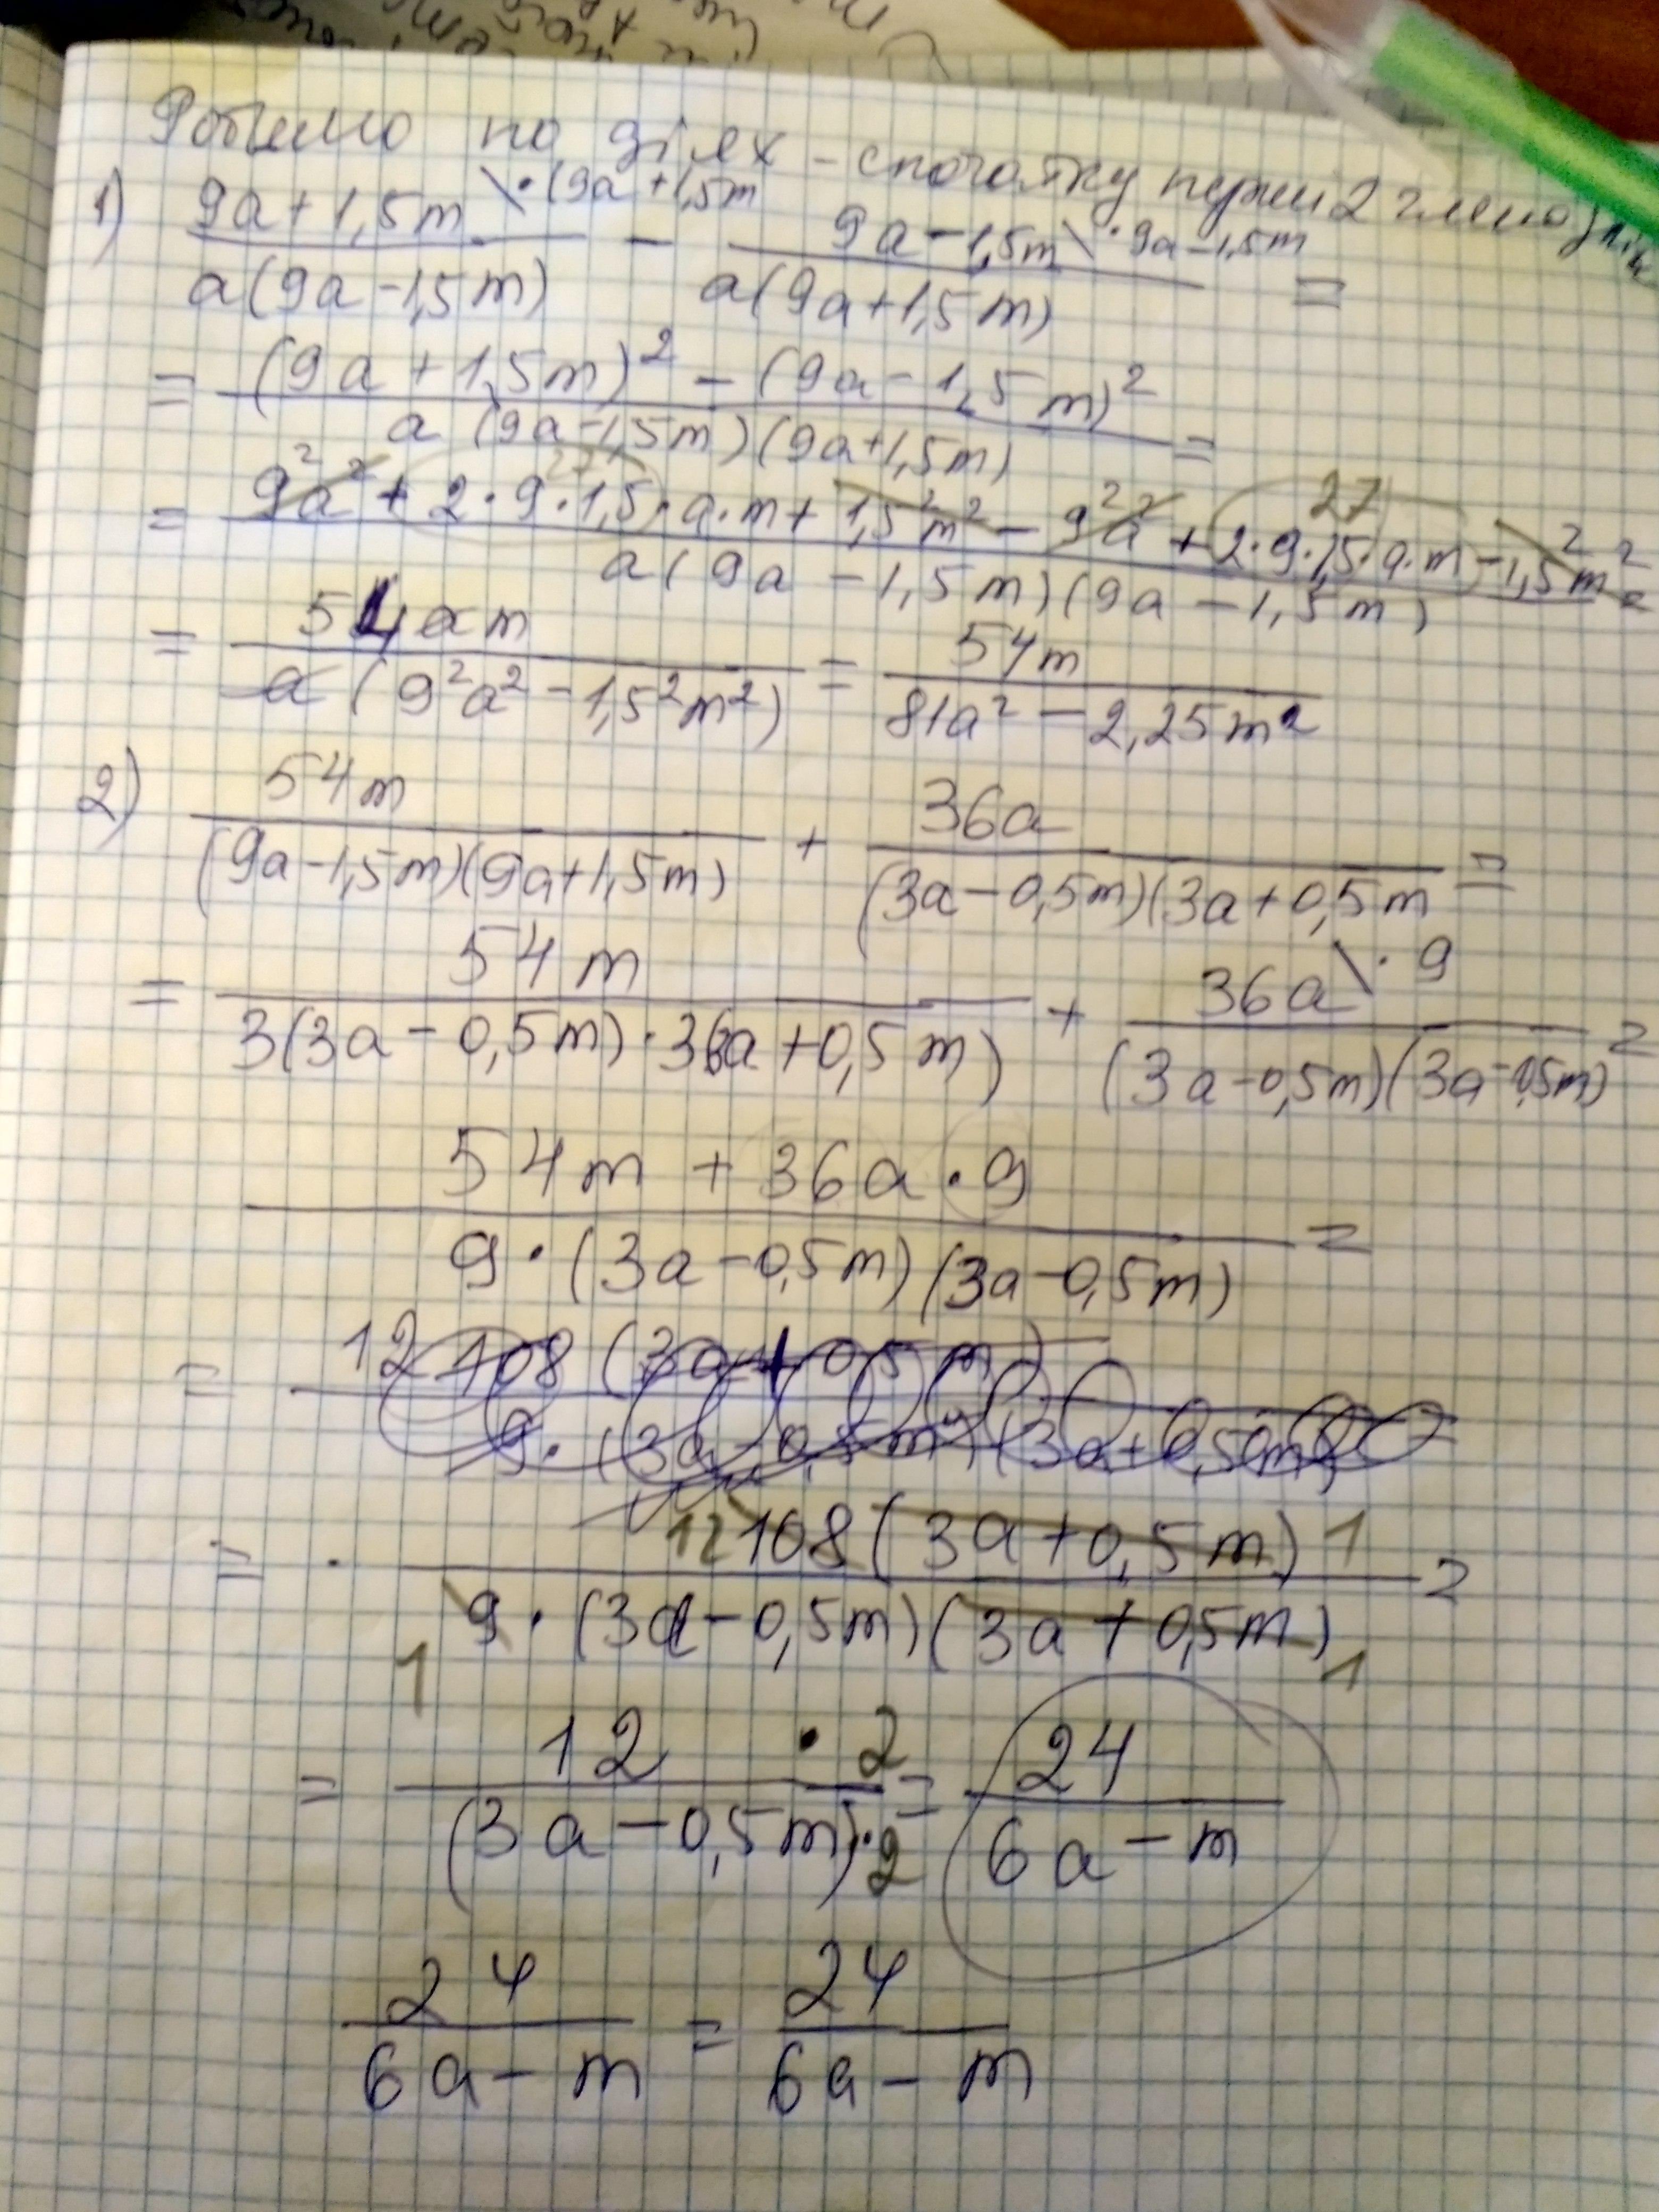 Робимо по діях - спочатку перші 2 члени
1) (9a+1,5m)/(a(9a-1,5m)) \·(9a+1,5m - (9a-1,5m)/(a(9a+1,5m)) \·9a-1,5m =
= ((9a+1,5m)² - (9a-1,5m)²)/(a(9a-1,5m)(9a+1,5m)) =
= (9²a² + 2·9·1,5·a·m + 1,5²m² - 9²a² + 2·9·1,5·a·m - 1,5²m²)/(a(9a-1,5m)(9a-1,5m)) = 27
= 54am/(a(9²a²-1,5²m²)) = 54m/(81a²-2,25m²)
2) 54m/((9a-1,5m)(9a+1,5m)) + 36a/((3a-0,5m)(3a+0,5m =
= 54m/(3(3a-0,5m)·3(3a+0,5m)) + 36a\·9/((3a-0,5m)(3a-0,5m) =
(54m+36a·9)/(9·(3a-0,5m)(3a-0,5m)) =
= 12 108(3a+0,5m)/(9·(3a-0,5m)(3a+0,5m)) =
= 12 108(3a+0,5m) 1/(1 9·(3a-0,5m)(3a+0,5m) 1) =
= 12·2/((3a-0,5m)·2) = 24/(6a-m)
24/(6a-m) = 24/(6a-m)